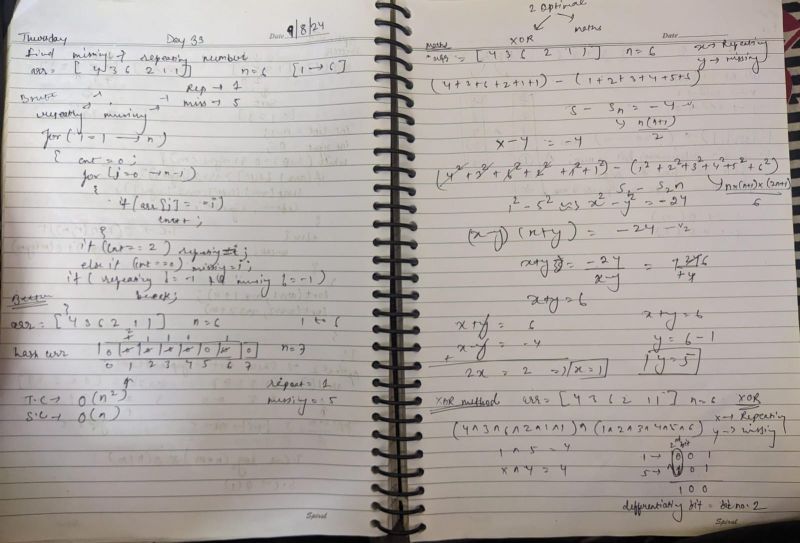 Thursday Day 33 Date 9/8/24
find missing & repeating number
arr = [ 4 3 6 2 1 1 ] n=6 [1 → 6]
Rep → 1
miss → 5
Brute -1 -1
repeating missing
for (i = 1 → n)
{ cnt = 0 ;
for (j = 0 → n-1)
{
if (arr[j] == i)
cnt++ ;
}
if (cnt == 2) repeating = i ;
else if (cnt == 0) missing = i ;
if ( repeating != -1 && missing != -1)
break;
Better
arr = [ 4 3 6 2 1 1 ] n=6 1 to 6
hash arr n=7
0 1 2 3 4 5 6 7
repeat = 1
T.C → O(n²) missing = 5
S.C → O(n)
Spiral
2 Optimal
XOR maths
Date
maths
arr = [ 4 3 6 2 1 1 ] n=6 x → Repeating
y → missing
(4+3+6+2+1+1) - (1+2+3+4+5+6)
S - Sn = -4
n(n+1)
2
x-y = -4
(4² + 3² + 6² + 2² + 1² + 1²) - (1² + 2² + 3² + 4² + 5² + 6²)
S2 - S2n n×(n+1)×(2n+1)
6
1² - 5² x² - y² = -24
(x-y) (x+y) = -24
x+y = -24
x-y
x+y = 6
x+y = 6 x+y = 6
x-y = -4 y = 6-1
2x = 2 => x=1 y=5
XOR method arr = [ 4 3 6 2 1 1 ] n=6 XOR
(4^3^6^2^1^1) ^ (1^2^3^4^5^6) x → Repeating
y → missing
1 ^ 5 = 4 1 → 0 0 1
x ^ y = 4 5 → 1 0 1
1 0 0
differentiating bit = bit no. 2
Spiral